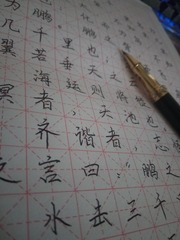 为鹏
几千里也,
翼若垂天之
海运则将
冥者,天池也
齐谐者,志
之言曰:“鹏之
水击三千